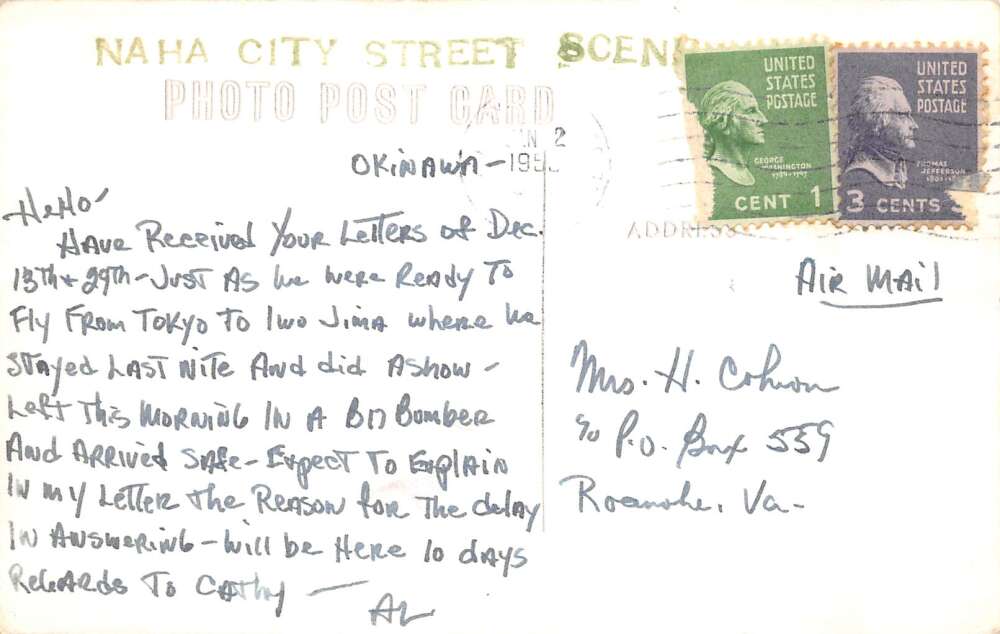 NAHA CITY STREET SCENE
PHOTO POST CARD
UNITED
STATES
POSTAGE
GEORGE
WASHINGTON
1789-1797
CENT 1
UNITED
STATES
POSTAGE
THOMAS
JEFFERSON
3 CENTS
2
OKINAWA-
Hello-
HAVE Received Your Letters of Dec.
13th + 29th - JUST AS we were Ready To
Fly FROM TOKYO TO IWO JIMA where we
STAYED LAST NITE AND did A show -
Left This MORNING IN A B17 Bomber
AND ARRIVED SAFE - Expect To Explain
IN MY LETTER the REASON for The delay
IN ANSWERING - will be Here 10 days
REGARDS To CATHY -
AL
ADDRESS
AIR MAIL
Mrs. H.
c/o P.O. Box 559
Roanoke, Va-